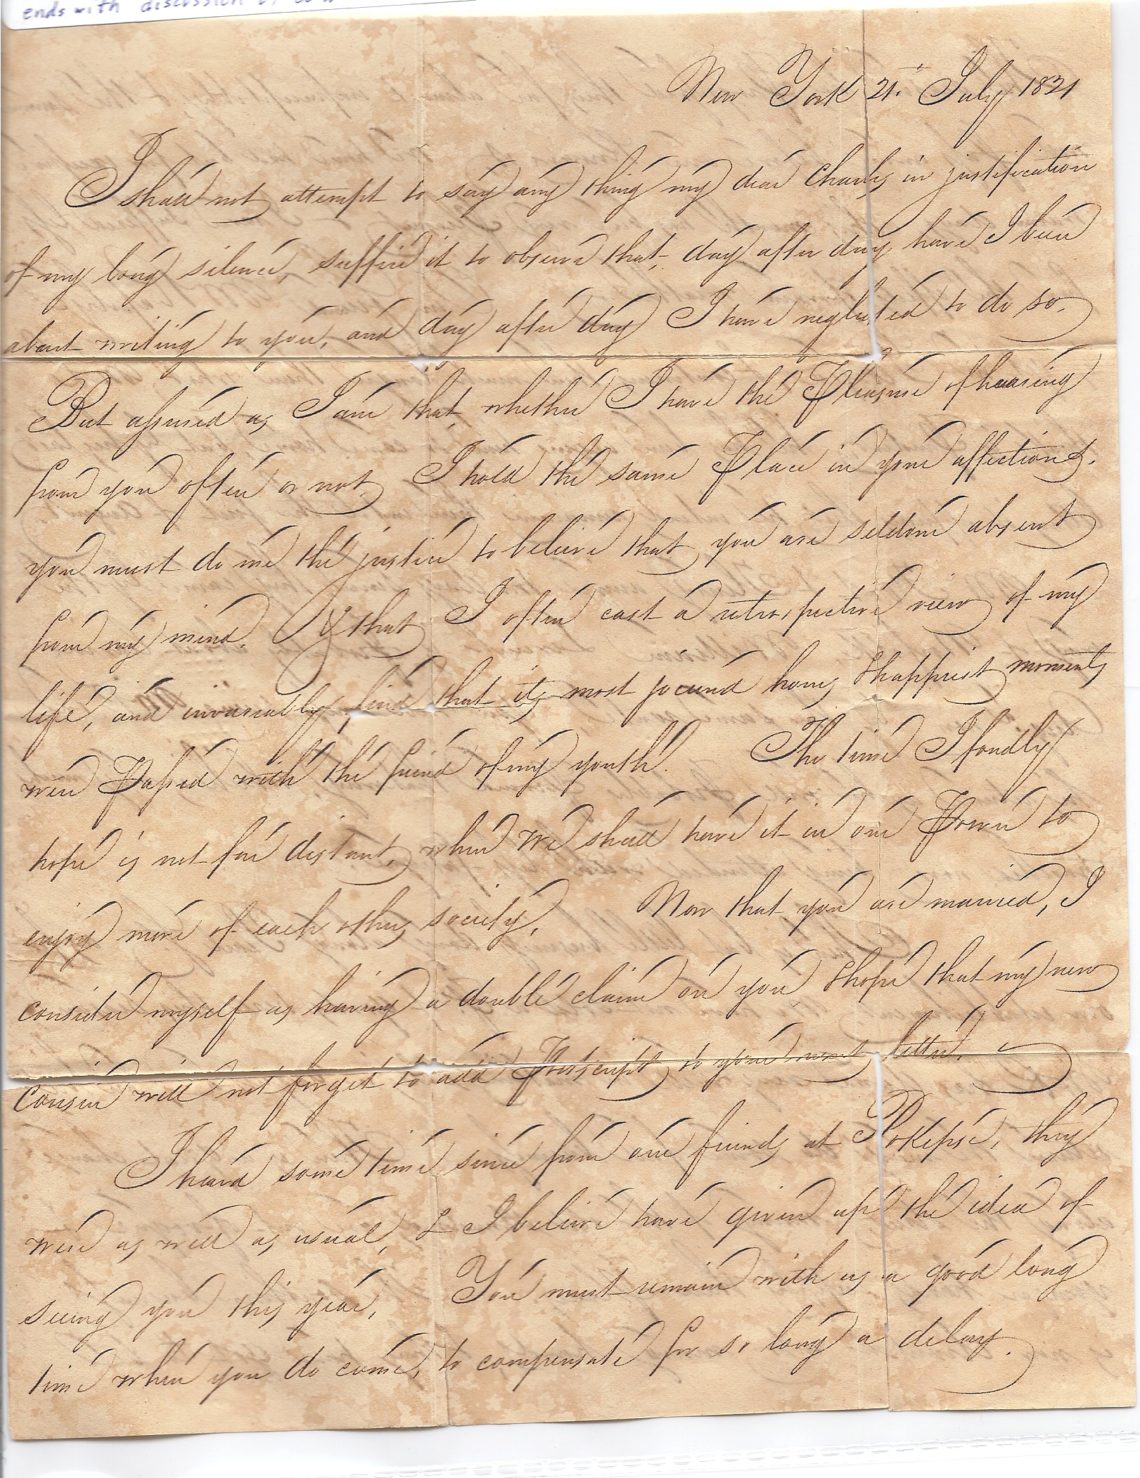 ends with discussion of
New York 21st July 1821
I shall not attempt to say any thing my dear Charles in justification
of my long silence, suffice it to observe that, day after day have I been
about writing to you, and day after day I have neglected to do so.
But assured as I am that, whether I have the Pleasure of hearing
from you often or not, I hold the same Place in your affections.
you must do me the justice to believe that you are seldom absent
from my mind. & that I often cast a retrospective view of my
life, and invariably find that its most jocund hours, & happiest moments
were Passed with the friend of my youth. The time I fondly
hope is not far distant, when we shall have it in our Power to
enjoy more of each others society. Now that you are married, I
consider myself as having a double claim on you & hope that my new
cousin will not forget to add Postscripts to your next letter.
I heard some time since from our friends at Pokepsie, they
were as well as usual, & I believe have given up the idea of
seeing you this year. You must remain with us a good long
time when you do come, to compensate for so long a delay.